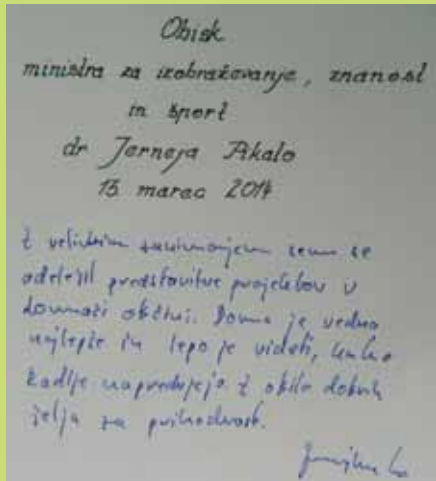 Obisk
ministra za izobraževanje, znanost
in šport
dr Jerneja Pikalo
13. marec 2014
Z velikim zanimanjem sem se
udeležil predstavitve projektov v
domači občini. Doma je vedno
najlepše in lepo je videti, kako
napredujejo z obilo dobrih
želja za prihodnost.